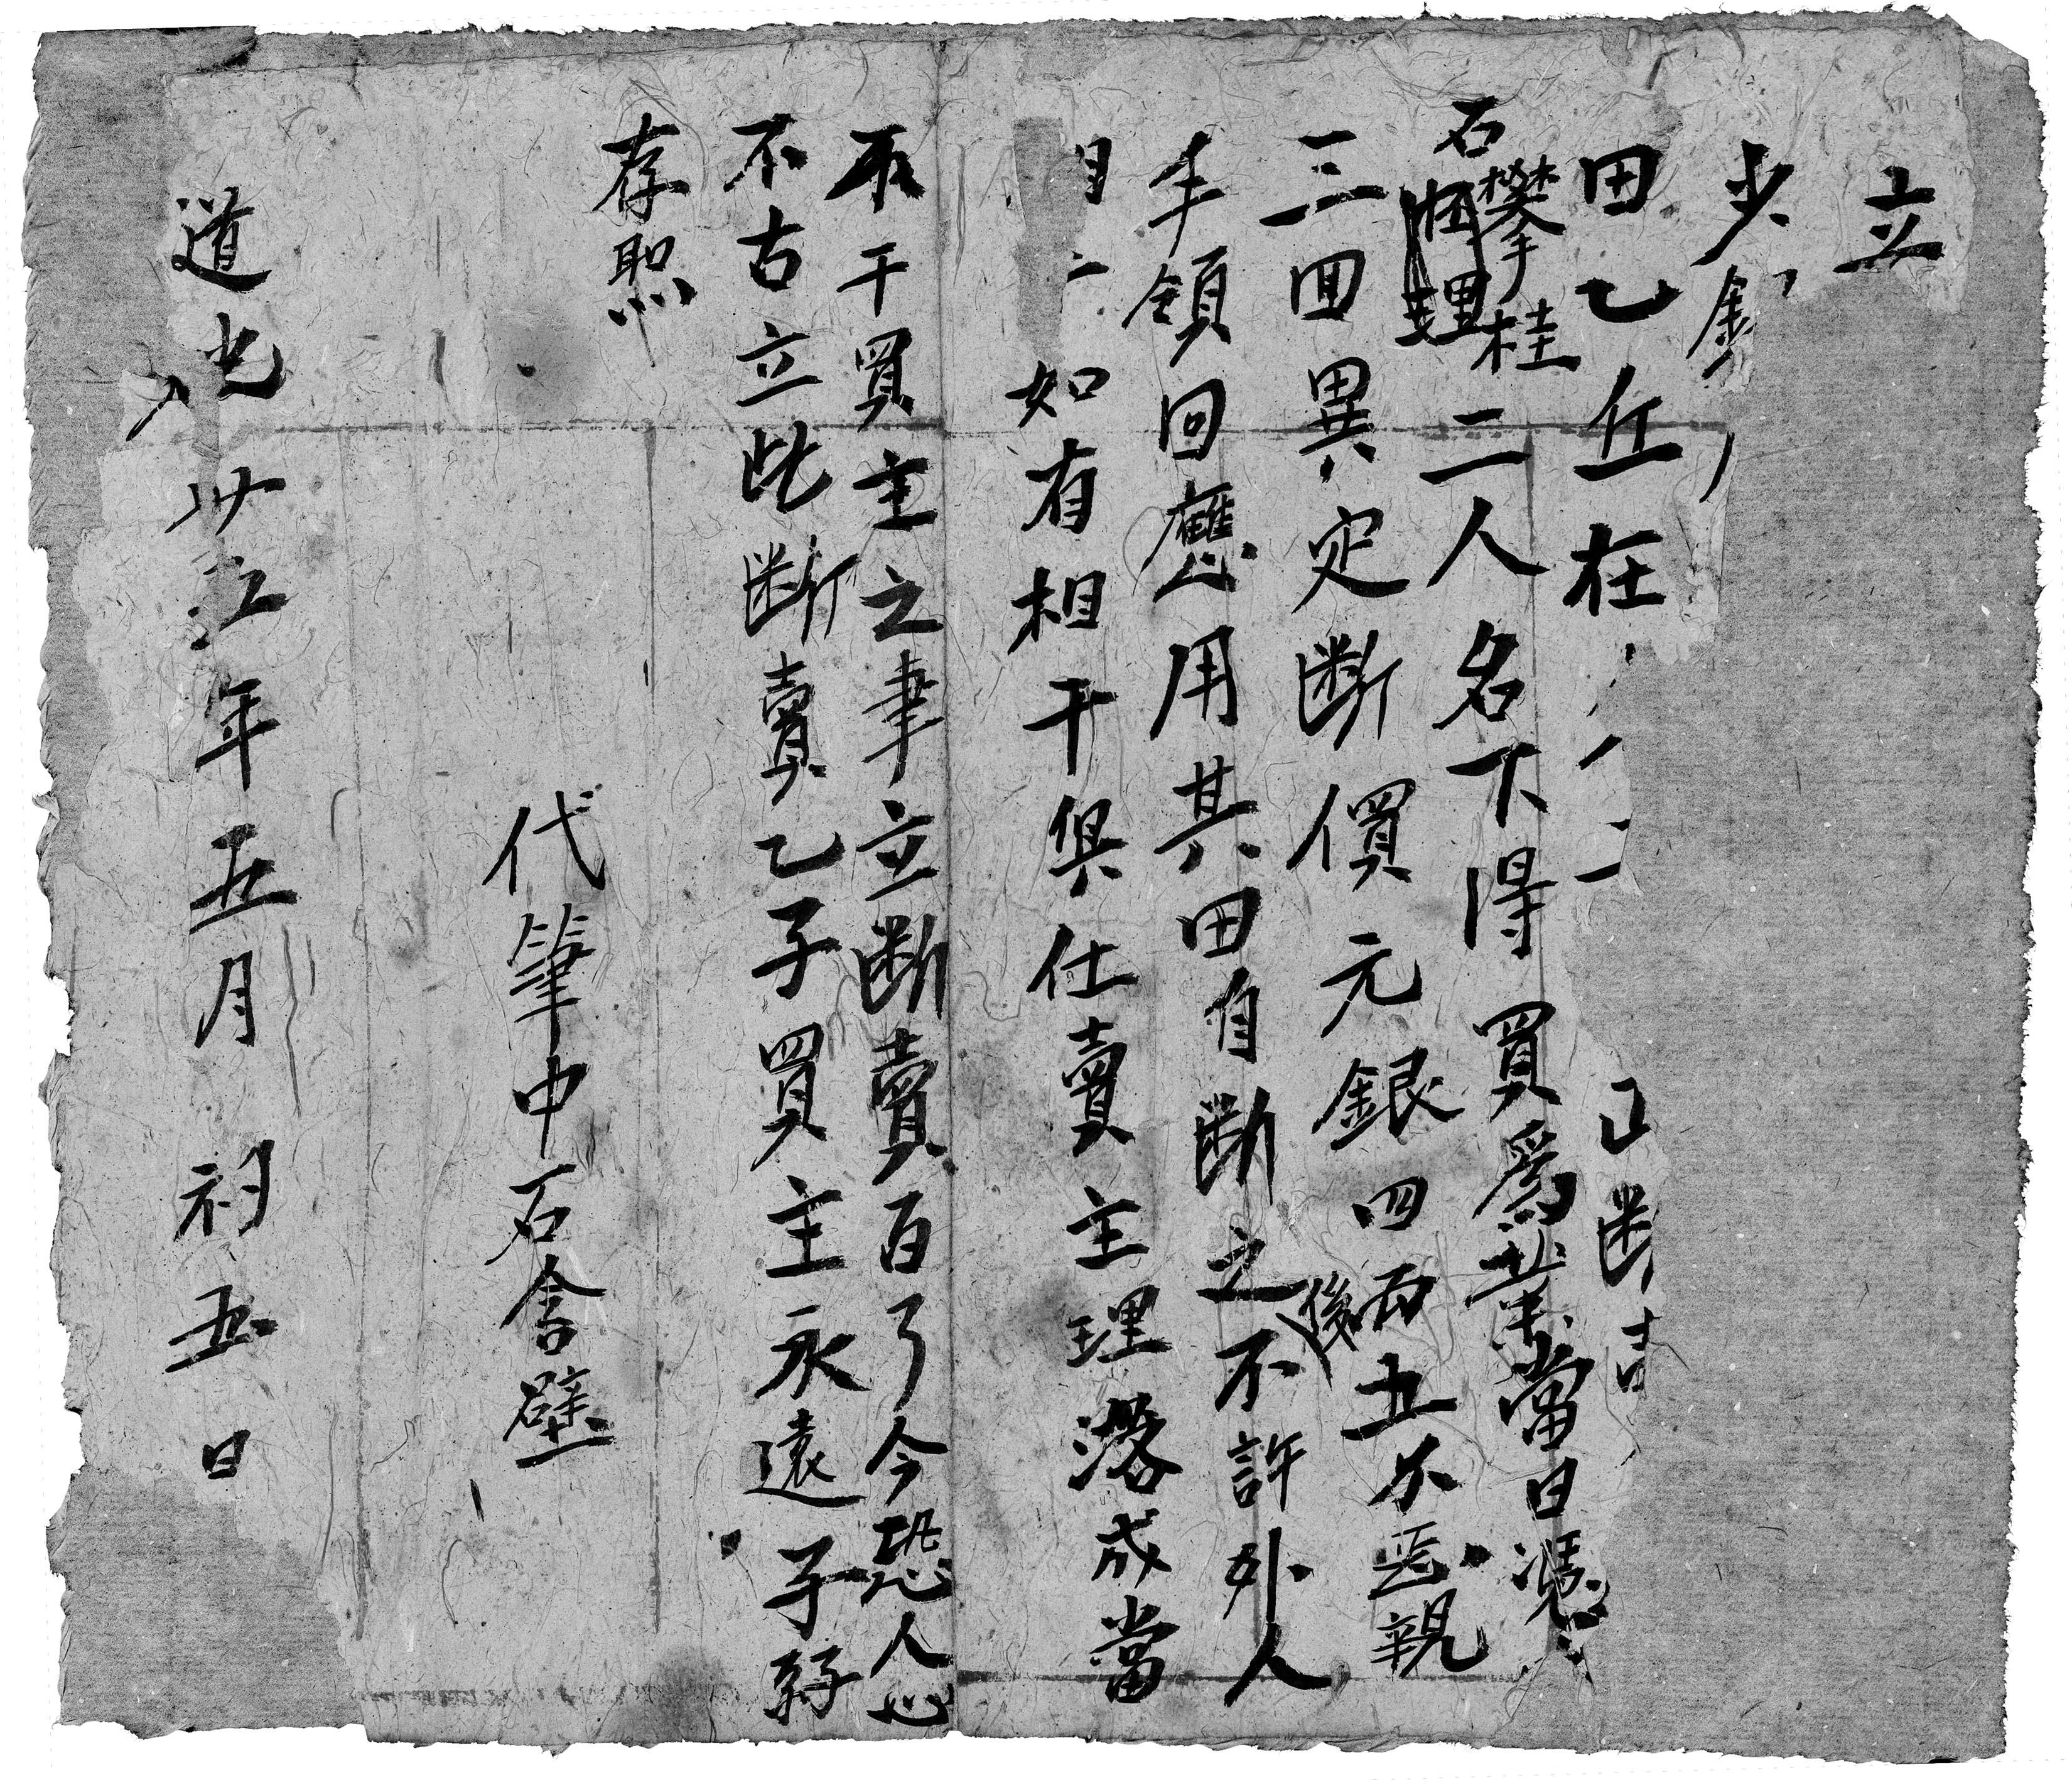 立
少銀
田乙丘在 断賣
石攀桂二人名下得買爲業當日憑
三面異定断價元銀四両五分正親
手領回應用其田自断之後不許外人
如有相干俱仕賣主理落成當
不干買主之事立断賣百了今恐人心
不古立此断賣乙子買主永遠子孫
存照
代筆中石含璧
道光廿五年五月初五日